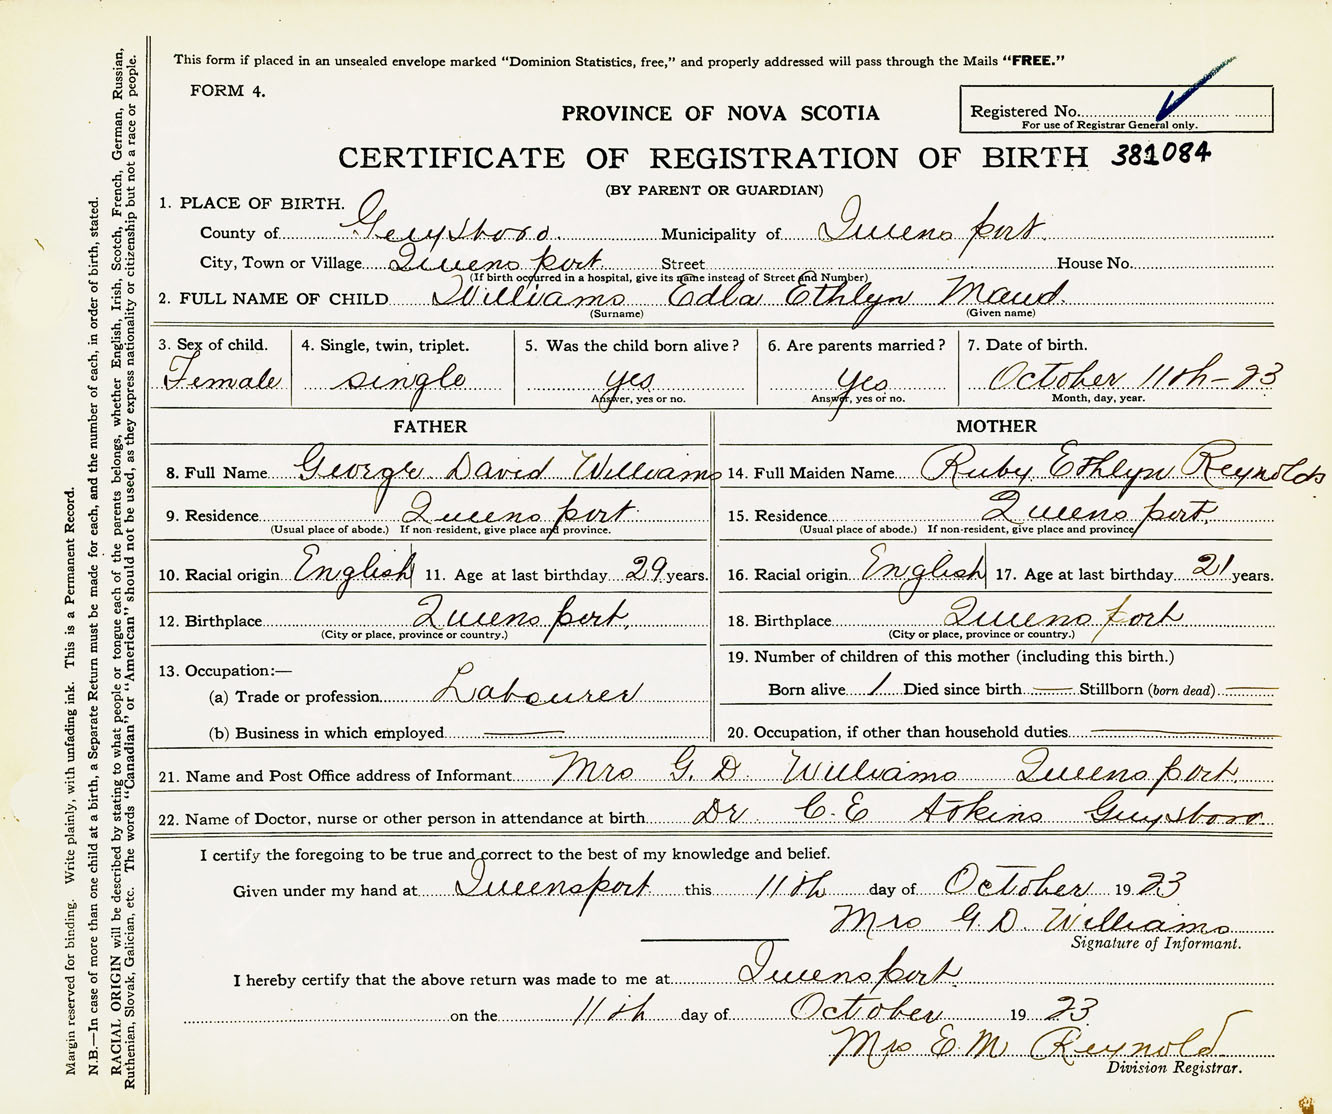 This form if placed in an unsealed envelope marked "Dominion Statistics, free," and properly addressed will pass through the Mails "FREE."
FORM 4.
PROVINCE OF NOVA SCOTIA
Registered No.
For use of Registrar General only.
CERTIFICATE OF REGISTRATION OF BIRTH 381084
(BY PARENT OR GUARDIAN)
1. PLACE OF BIRTH.
County of Guysboro. Municipality of Queens port.
City, Town or Village Queens port. Street House No.
(If birth occurred in a hospital, give its name instead of Street and Number)
2. FULL NAME OF CHILD Williams Edla Ethlyn Maud.
(Surname) (Given name)
3. Sex of child. 4. Single, twin, triplet. 5. Was the child born alive? 6. Are parents married? 7. Date of birth.
Female single yes yes October 11th - 23
Answer, yes or no. Answer, yes or no. Month, day, year.
FATHER MOTHER
8. Full Name George David Williams 14. Full Maiden Name Ruby Ethlyn Reynolds
9. Residence Queens port. 15. Residence Queens port.
(Usual place of abode.) If non-resident, give place and province. (Usual place of abode.) If non-resident, give place and province
10. Racial origin English 11. Age at last birthday 29 years. 16. Racial origin English 17. Age at last birthday 21 years.
12. Birthplace Queens port. 18. Birthplace Queens port
(City or place, province or country.) (City or place, province or country.)
13. Occupation:— 19. Number of children of this mother (including this birth.)
(a) Trade or profession Labourer Born alive 1 Died since birth — Stillborn (born dead) —
(b) Business in which employed — 20. Occupation, if other than household duties —
21. Name and Post Office address of Informant Mrs G. D. Williams Queens port.
22. Name of Doctor, nurse or other person in attendance at birth Dr. C. E Atkins Guysboro.
I certify the foregoing to be true and correct to the best of my knowledge and belief.
Given under my hand at Queensport this 11th day of October 1923
Mrs G. D. Williams
Signature of Informant.
I hereby certify that the above return was made to me at Queensport.
on the 11th day of October 1923
Mrs E. M Reynold
Division Registrar.
Margin reserved for binding. Write plainly, with unfading ink. This is a Permanent Record.
N.B.—In case of more than one child at a birth, a Separate Return must be made for each, and the number of each, in order of birth, stated.
RACIAL ORIGIN will be described by stating to what people or tongue each of the parents belongs, whether English, Irish, Scotch, French, German, Russian,
Ruthenian, Slovak, Galician, etc. The words "Canadian" or "American" should not be used, as they express nationality or citizenship but not a race or people.